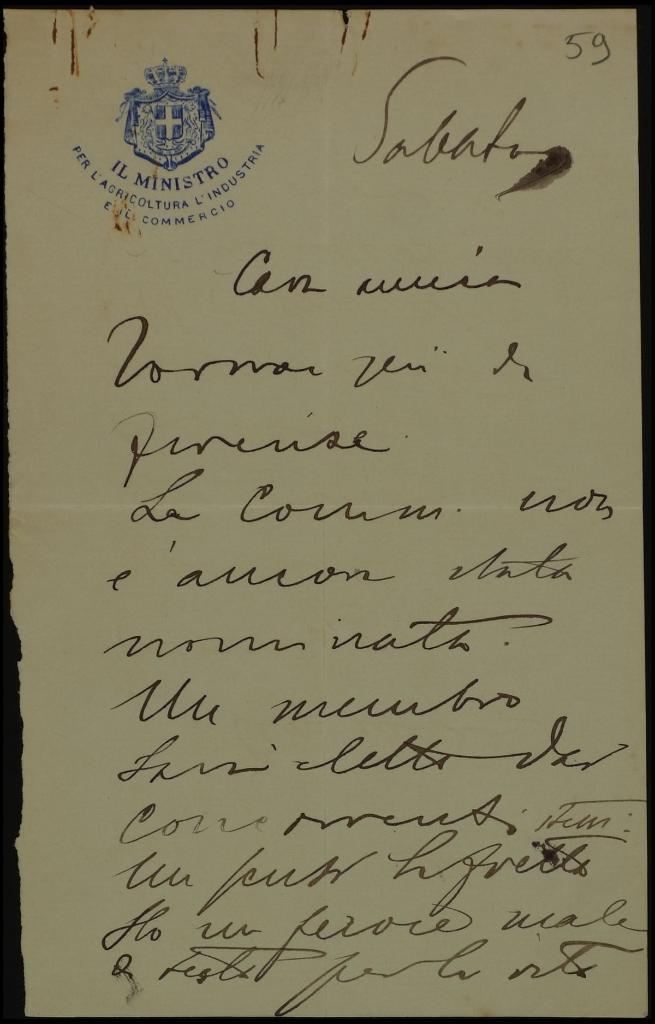 59
IL MINISTRO
PER L'AGRICOLTURA L'INDUSTRIA
E IL COMMERCIO
Sabato
Cara amica
Tornai jeri da
Firenze.
La Comm. non
è ancora stata
nominata.
Un membro
sarà eletto dai
concorrenti stessi.
Un
Ho un feroce male
a testa per la